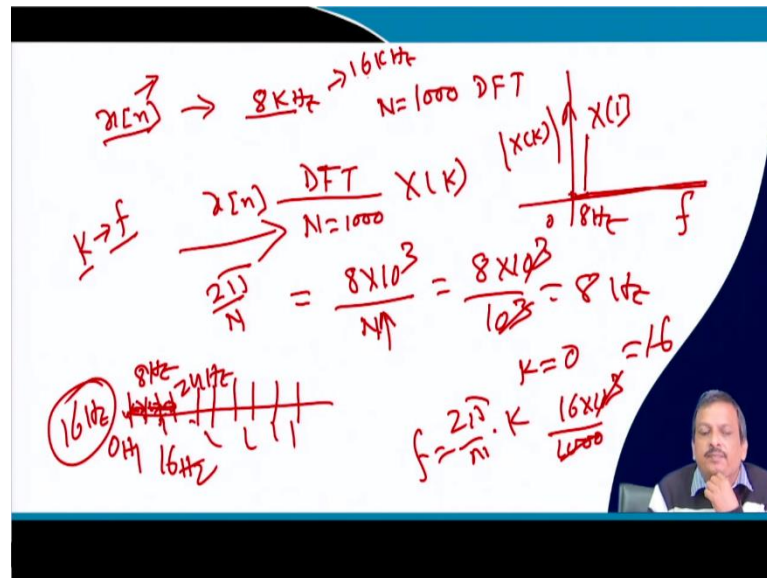 x[n] → 8KHz → 16KHz
N=1000 DFT
|X(K)| X(1)
0 8Hz f
K→f x[n] DFT X(K)
N=1000
2π/N = 8×10³/N↑ = 8×10³/10³ = 8 Hz
K=0 =16
8Hz 24Hz
16Hz
0Hz 16Hz
f = 2π/N · K 16×10³/1000